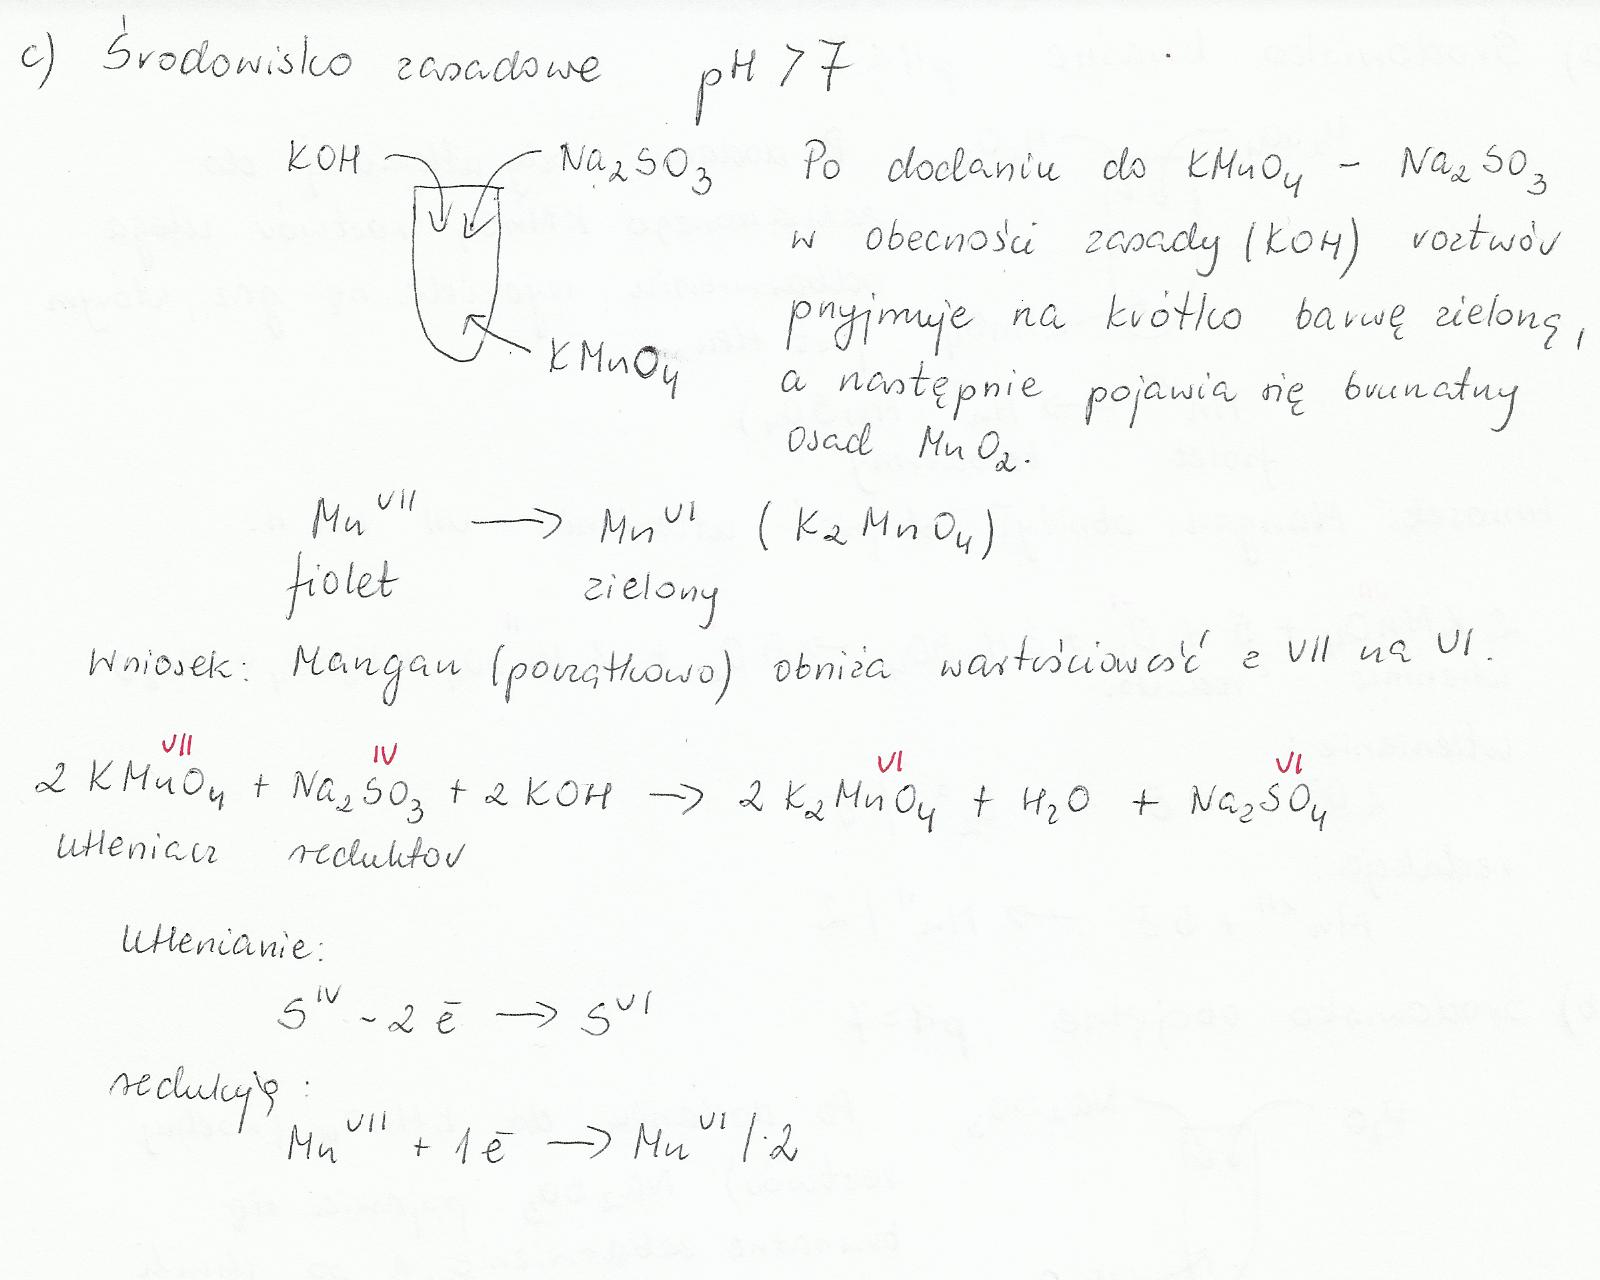 c) Środowisko zasadowe pH > 7
KOH Na₂SO₃
KMnO₄
Po dodaniu do KMnO₄ – Na₂SO₃
w obecności zasady (KOH) roztwór
przyjmuje na krótko barwę zieloną,
a następnie pojawia się brunatny
osad MnO₂.
Mn^VII → Mn^VI (K₂MnO₄)
fiolet zielony
Wniosek: Mangan (początkowo) obniża wartościowość z VII na VI.
VII IV VI VI
2 KMnO₄ + Na₂SO₃ + 2 KOH → 2 K₂MnO₄ + H₂O + Na₂SO₄
Utleniacz reduktor
Utlenianie:
S^IV - 2 ē → S^VI
redukcja:
Mn^VII + 1ē → Mn^VI /·2